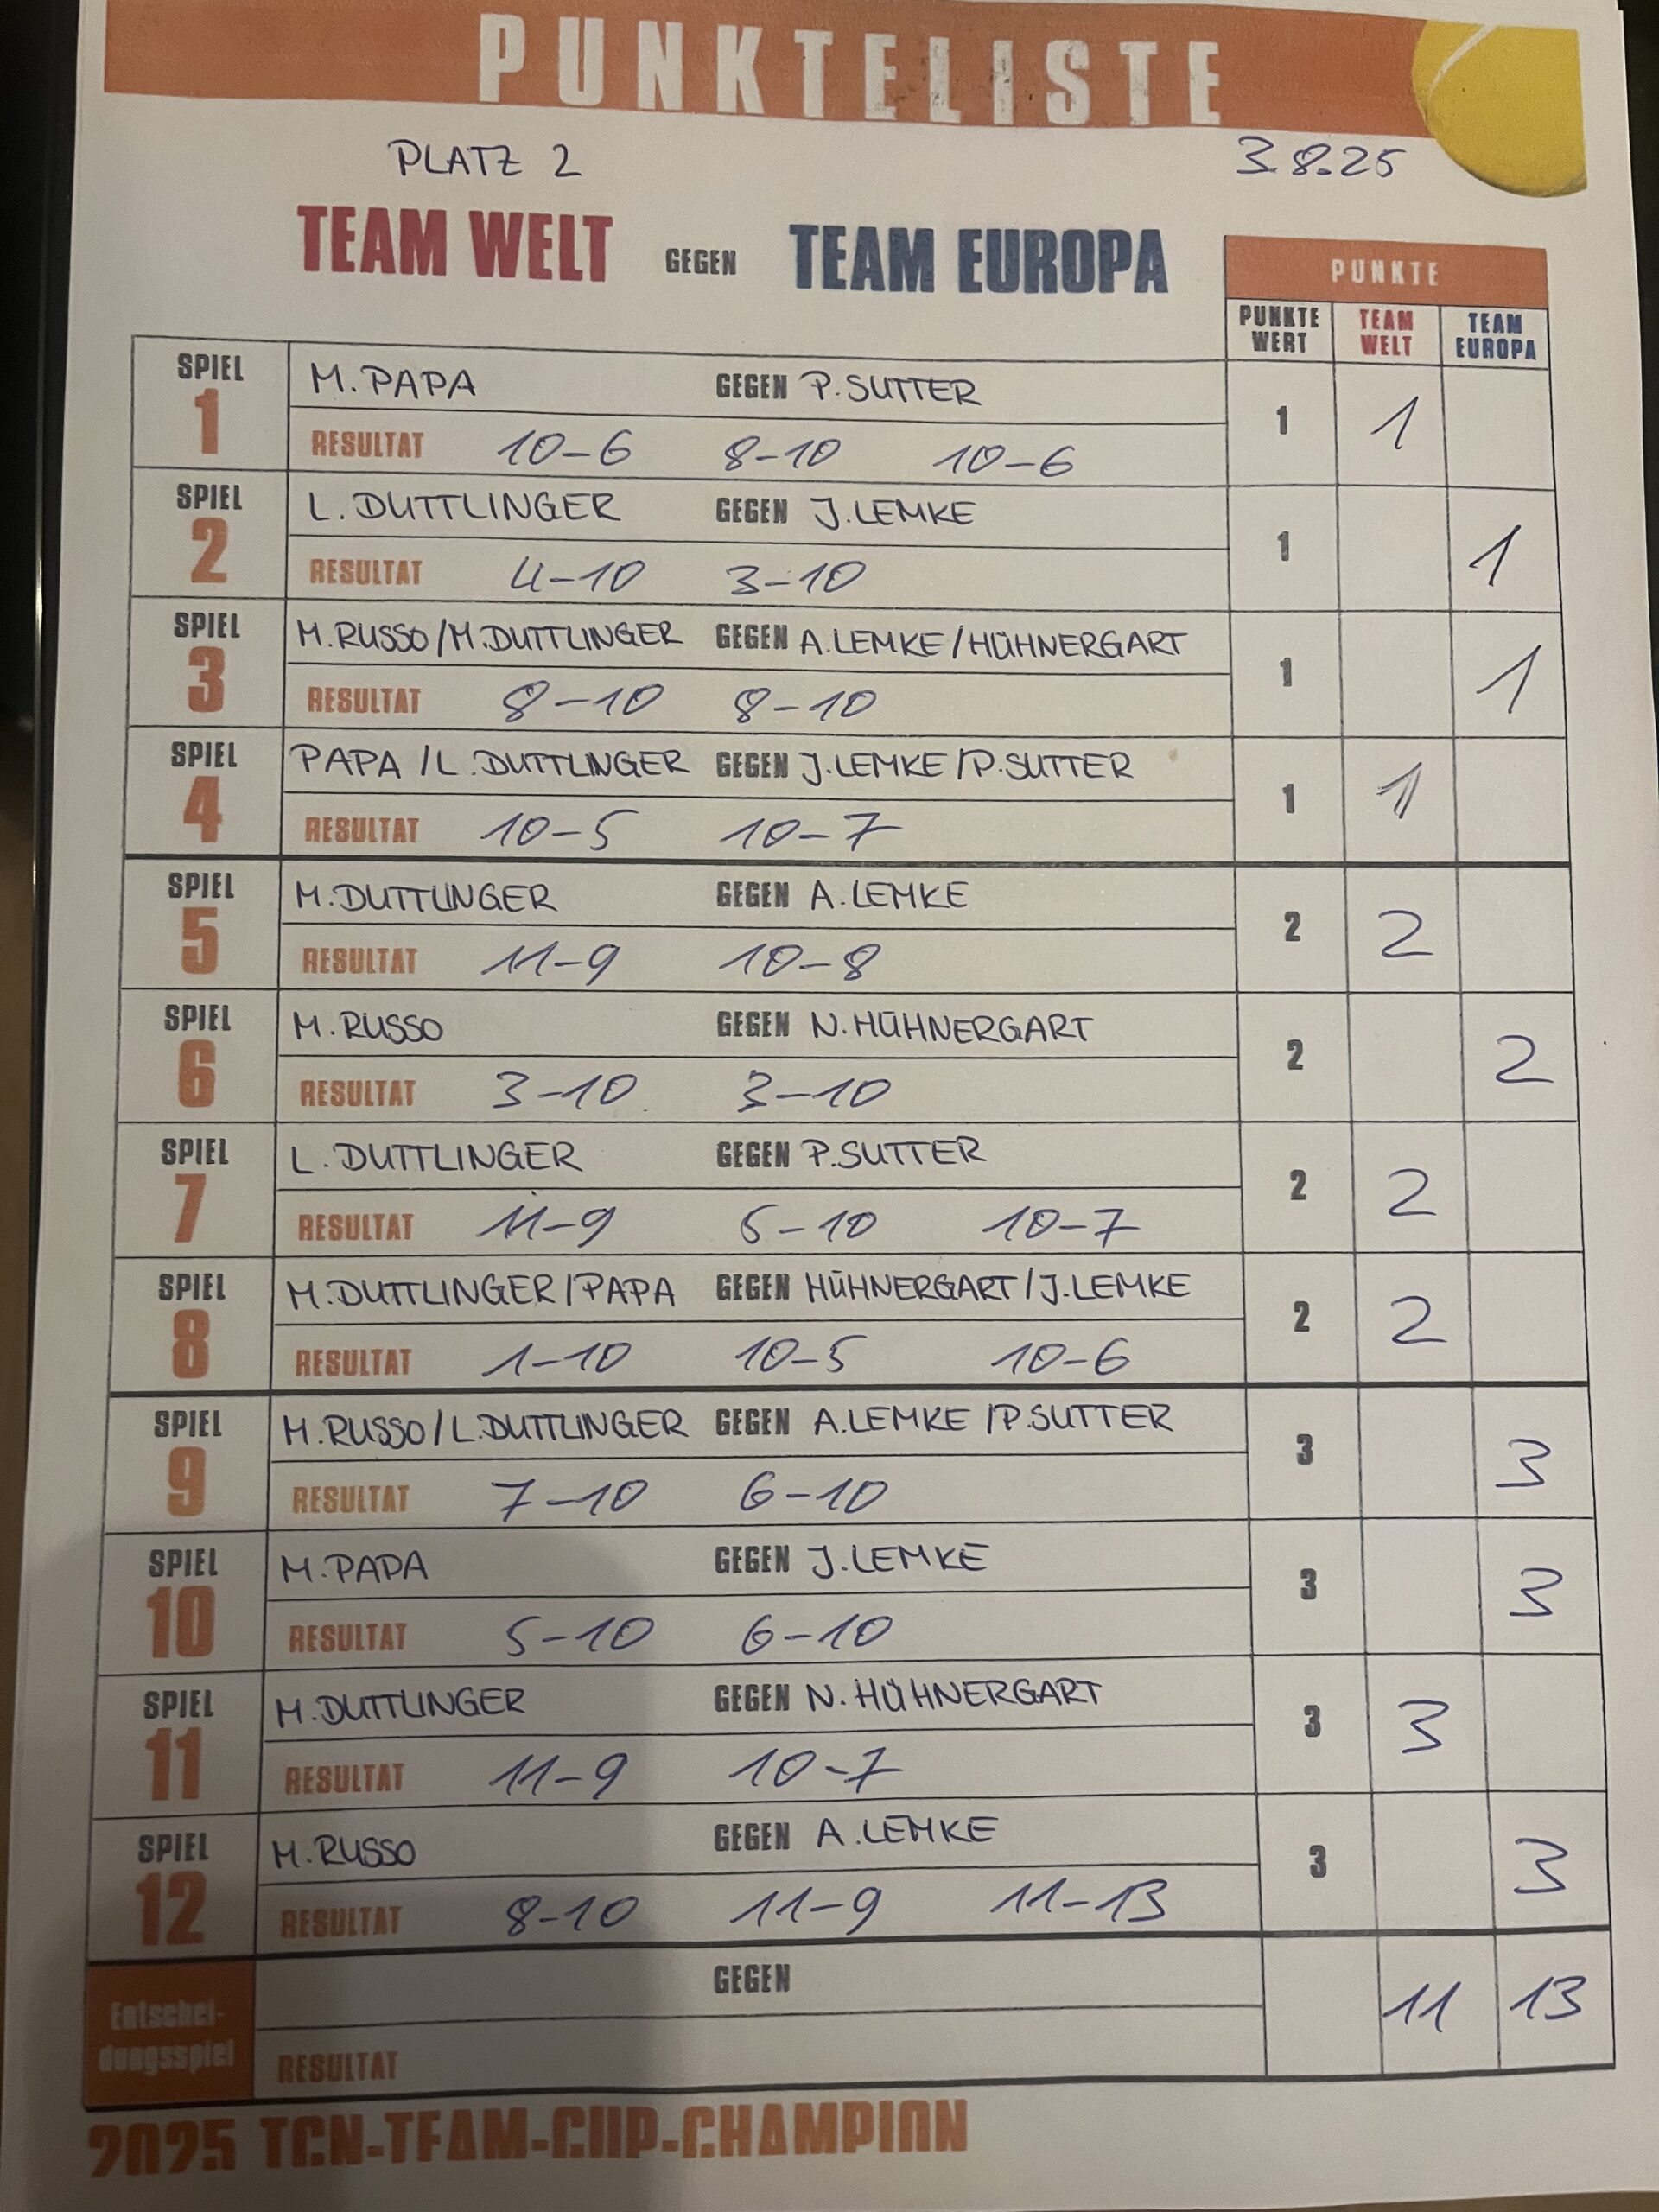 PUNKTELISTE
PLATZ 2 3.8.25
TEAM WELT GEGEN TEAM EUROPA
PUNKTE
PUNKTE WERT TEAM WELT TEAM EUROPA
SPIEL 1 M. PAPA GEGEN P. SUTTER
RESULTAT 10-6 8-10 10-6 1 1
SPIEL 2 L. DUTTLINGER GEGEN J. LEMKE
RESULTAT 4-10 3-10 1 1
SPIEL 3 M. RUSSO / M. DUTTLINGER GEGEN A. LEMKE / HÜHNERGART
RESULTAT 8-10 8-10 1 1
SPIEL 4 PAPA / L. DUTTLINGER GEGEN J. LEMKE / P. SUTTER
RESULTAT 10-5 10-7 1 1
SPIEL 5 M. DUTTLINGER GEGEN A. LEMKE
RESULTAT 11-9 10-8 2 2
SPIEL 6 M. RUSSO GEGEN N. HÜHNERGART
RESULTAT 3-10 3-10 2 2
SPIEL 7 L. DUTTLINGER GEGEN P. SUTTER
RESULTAT 11-9 5-10 10-7 2 2
SPIEL 8 M. DUTTLINGER / PAPA GEGEN HÜHNERGART / J. LEMKE
RESULTAT 1-10 10-5 10-6 2 2
SPIEL 9 M. RUSSO / L. DUTTLINGER GEGEN A. LEMKE / P. SUTTER
RESULTAT 7-10 6-10 3 3
SPIEL 10 M. PAPA GEGEN J. LEMKE
RESULTAT 5-10 6-10 3 3
SPIEL 11 M. DUTTLINGER GEGEN N. HÜHNERGART
RESULTAT 11-9 10-7 3 3
SPIEL 12 M. RUSSO GEGEN A. LEMKE
RESULTAT 8-10 11-9 11-13 3 3
Entschei-dungsspiel GEGEN 11 13
RESULTAT
2025 TCN-TEAM-CUP-CHAMPION